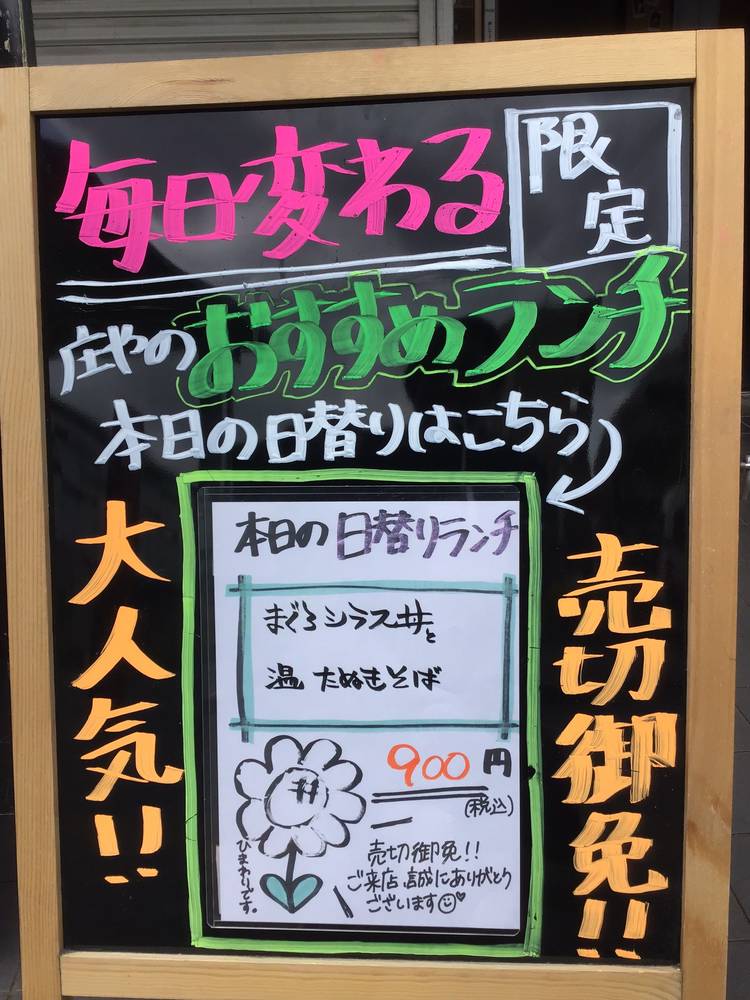 毎日変わる
限定
庄やのおすすめランチ
本日の日替りはこちら
大人気!!
売切御免!!
本日の日替りランチ
まぐろシラス丼と
温 たぬきそば
900円
(税込)
ひまわりです。
売切御免!!
ご来店、誠にありがとう
ございます